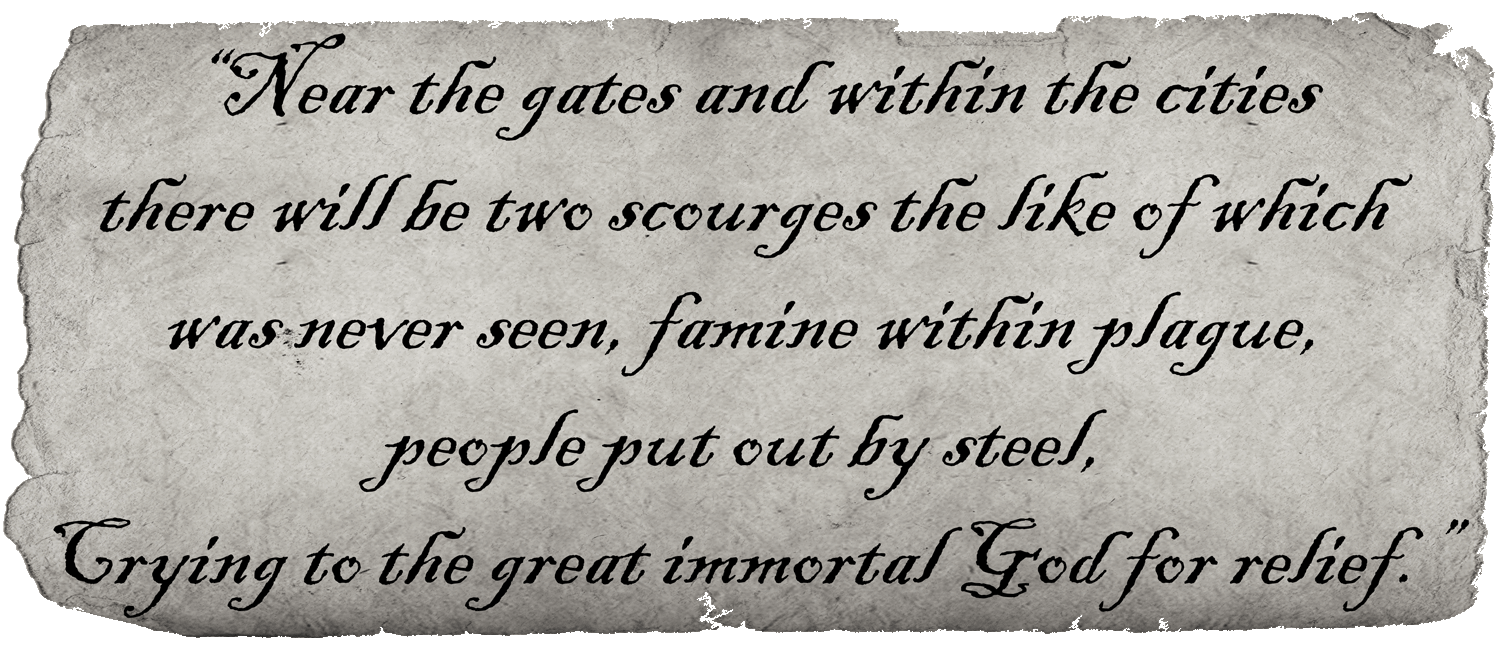 “Near the gates and within the cities
there will be two scourges the like of which
was never seen, famine within plague,
people put out by steel,
Crying to the great immortal God for relief.”